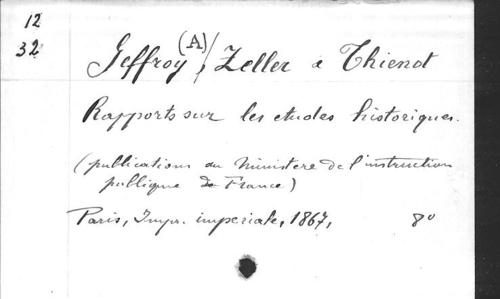 12
32
Geffroy (A)/, Zeller e Thienot
Rapports sur les etudes historiques.
(publications du Ministere de l'instruction
publique de France)
Paris, Impr. imperiale, 1867, 8°